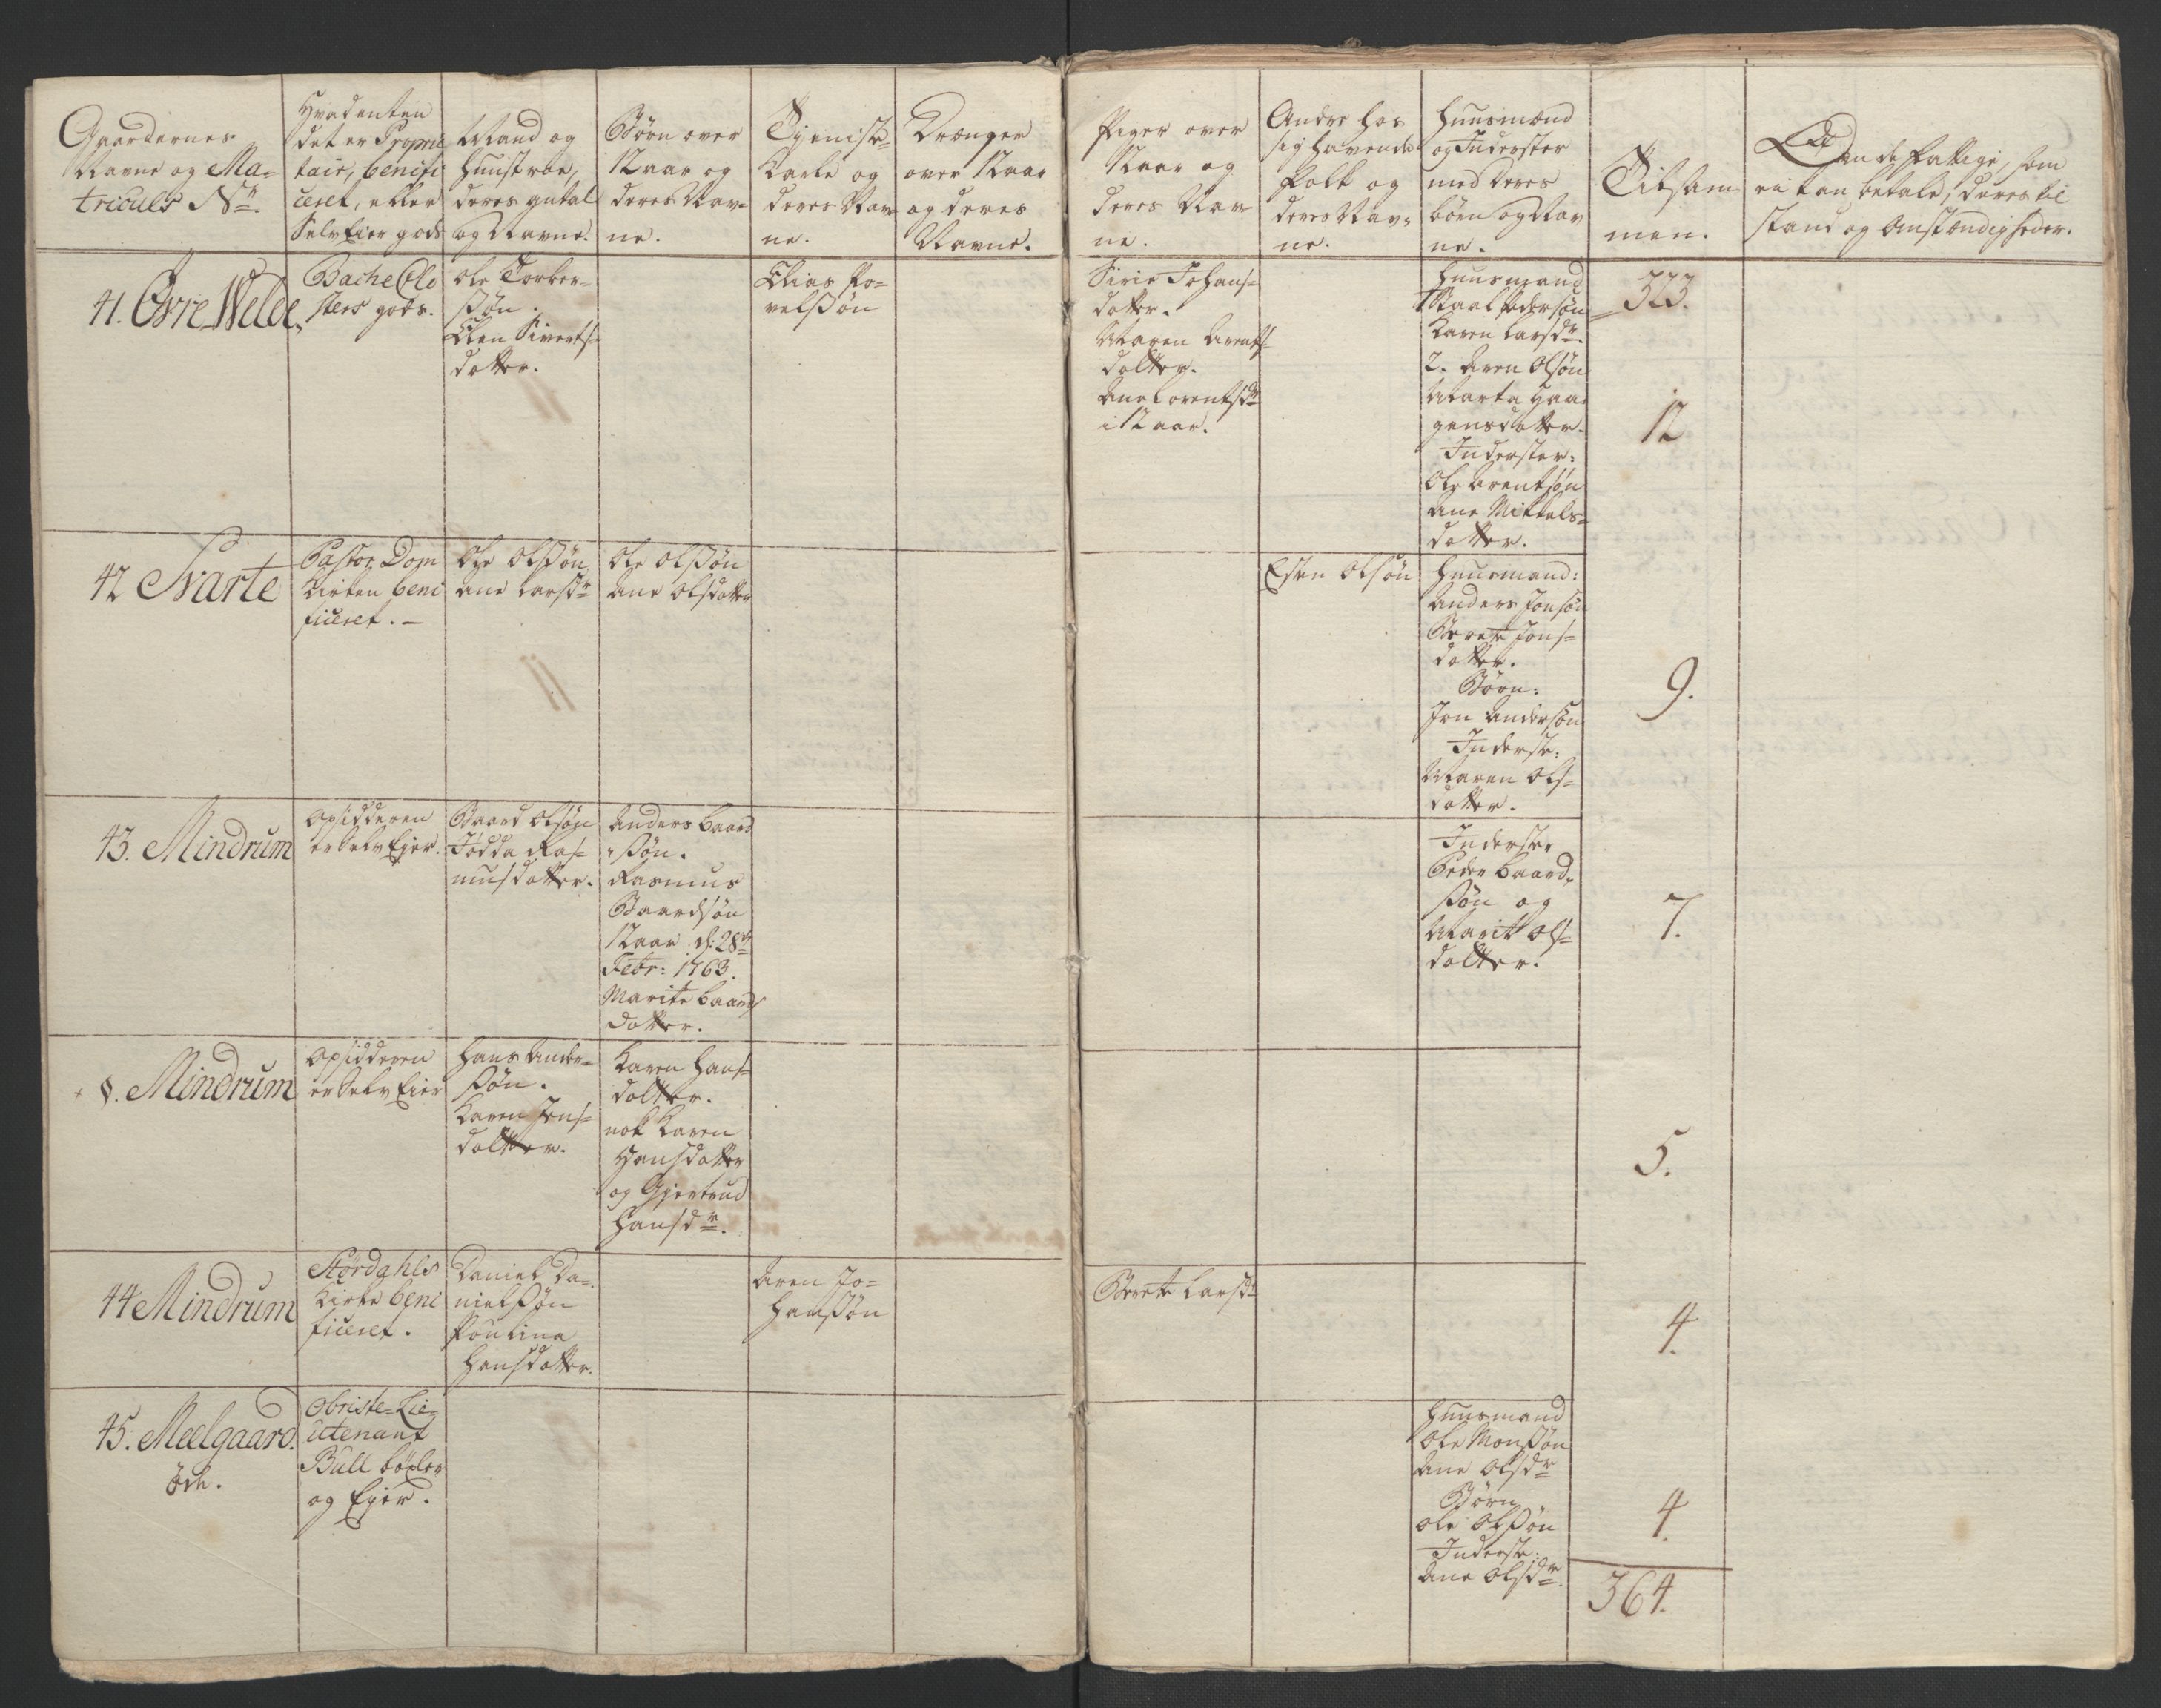 Gaardernes
Navne og Ma-
triculs No.
Hvadenten
det er Proprie
tair, benifi
ceret, eller
SelvEier gods
Mand og
Huustroe,
deres antal
og Navne.
Børn over
12 aar og
deres Nav-
ne.
Tjeniste-
Karle og
deres Nav
ne.
Drænger
over 12 aar
og deres
Navne.
Piger over
12 aar og
deres Nav
ne.
Andre hos
sig havende
folk og
deres Nav-
ne.
Huusmænd
og Inderster
med deres
børn og Nav
ne.
Tilsam
men.
De fattige, som
ei kan betale, deres til
stand og Omstændigheder.
41. Øvre Welde
Bache Clo
sters gods.
Ole Torber-
ssøn.
Elen Siverts-
datter.
Elias Po-
velssøn
Sirie Johans-
datter.
Maren Arents-
datter.
Ane Lorentsdr
i 12 aar.
Huusmand
1 Paal Pedersøn
Karen Larsdr
2. Aren Olsøn
Marta Haa
gensdatter.
Inderster:
Ole Arentsøn
Ane Mikkels-
datter.
323.
12
42 Svarte
Pastor Dom
Kirken beni
ficeret. –
Ole Olssøn
Ane Larsdr
Ole Olssøn
Ane Olsdatter
Esten Olsøn
Huusmand:
Anders Jonsøn
Berete Jons-
datter.
Børn:
Jon Andersøn
Inderste:
Maren Ols-
datter.
9.
43. Mindrum
Opsidderen
er Selv Ejer.
Baard Olsøn
Jødda Ras-
musdatter.
Anders Baard
ssøn.
Rasmus
Baardsøn
12 aar d: 28de
Febr: 1763.
Marite Baards
datter.
Inderster
Peder Baard-
ssøn og
Marit Ols-
datter.
7.
§. Mindrum
Opsidderen
er Selv Eier
Hans Ander-
ssøn.
Karen Jons-
datter.
Karen Hans-
datter.
nok Karen
Hansdatter
og Gjertrud
Hansdr.
5.
44 Mindrum
Størdahls
Kirke beni
ficeret.
Daniel Da-
nielssøn
Poulina
Hansdatter.
Aren Jo-
hanssøn
Berete Larsdr
4.
45. Meelgaard.
øde.
Obriste-Lie-
utenant
Bull bøxler
og Ejer.
Huusmand
Ole Monssøn
Ane Olsdr
Børn
Ole Olssøn
Inderste:
Ane Olsdr.
4.
364.